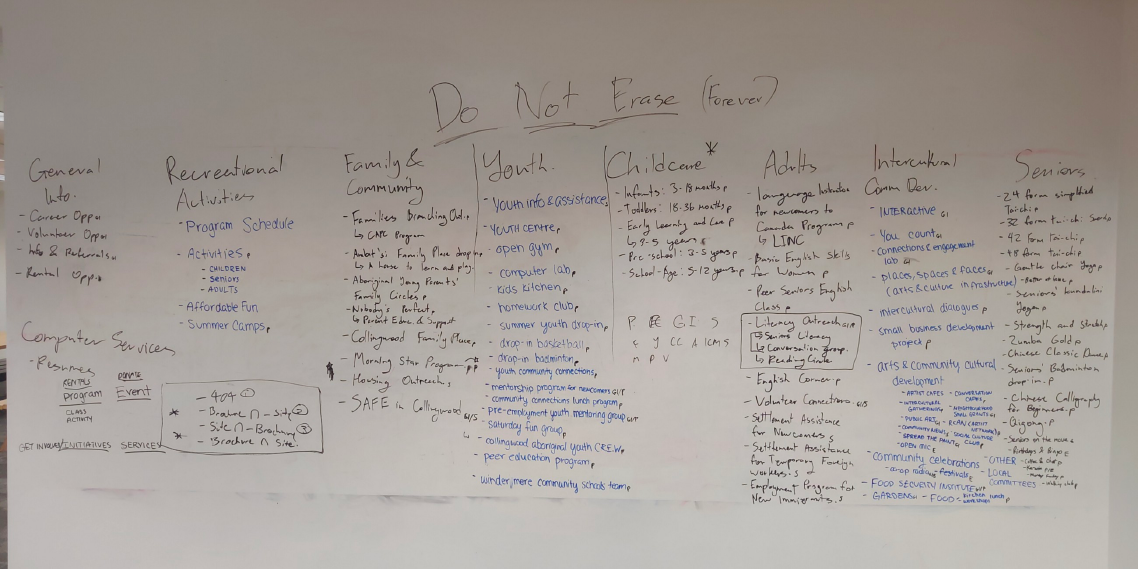 Do Not Erase (Forever)
General
Info.
- Career Opps
- Volunteer Opps
- Info & Referrals
- Rental Opp.
Computer Services
- Resumes
RENTALS
Program
CLASS
ACTIVITY
DONATE
Event
GET INVOLVED/INITIATIVES SERVICES
Recreational
Activities
- Program Schedule
- Activities P
- CHILDREN
- SENIORS
- ADULTS
- Affordable Fun
- Summer Camps P
- 404 ①
* - Brochure ∩ - Site ②
- Site ∩ - Brochure ③
* - Brochure ∩ Site
Family &
Community
- Families Branching Out P
↳ CAPC Program
Family Place drop in
↳ A house to learn and play
- Aboriginal Young Parents'
Family Circles P
- Nobody's Perfect P
↳ Parent Educ. & Support
- Collingwood Family Place P
- Morning Star Program
- Housing Outreach S
- SAFE in Collingwood
GI/S
Youth
- youth info & assistance
- youth centre P
- open gym P
- computer lab P
- kids kitchen P
- homework club P
- summer youth drop-in P
- drop-in basketball P
- drop-in badminton P
- youth community connections P
- mentorship program for newcomers GI/P
- community connections lunch program P
- pre-employment youth mentoring group GI/P
- Saturday fun group P
- collingwood aboriginal youth CREW P
- peer education program P
- windermere community schools team P
Childcare *
- Infants: 3-18 months P
- Toddlers: 18-36 months P
- Early Learning and Care P
- Pre-school: 3-5 years P
- School-Age: 5-12 years P
P E GI S
Adults
- Language Instruction
for newcomers to
Canada Program P
↳ LINC
- Basic English Skills
for Women P
- Peer Seniors English
Class P
- Literacy Outreach GI/P
↳ Seniors Literacy
↳ Conversation group
↳ Reading Circle
- English Corner P
- Volunteer Connections GI/S
- Settlement Assistance
for Newcomers S
- Settlement Assistance
for Temporary Foreign
Workers S
- Employment Program for
New Immigrants S
Intercultural
Comm Dev.
- INTERACTIVE GI
- You count GI
- connections & engagement
lab GI
- places, spaces & faces GI
(arts & culture infrastructure)
- intercultural dialogues P
- small business development
project P
- arts & community cultural
development
- ARTIST CAFES
- INTERCULTURAL
GATHERING
- PUBLIC ART
- COMMUNITY NEWS
- SPREAD THE PAINT
- OPEN MIC E
- CONVERSATION
CAFES
- NEIGHBOURHOOD
SMALL GRANTS GI
- RCAN (ARTIST
NETWORK)
- SOCIAL CULTURE
CLUB P
- community celebrations
- co-op radio - festivals E
- FOOD SECURITY INSTITUTE
- GARDENS - FOOD - kitchen lunch
workshops
- OTHER
LOCAL
COMMITTEES
Seniors
- 24 form simplified
Tai-chi P
- 32 form tai-chi: Sword P
- 42 form Tai-chi P
- 48 form tai-chi P
- Gentle chair Yoga P
- Seniors' foundation
Yoga P
- Strength and Stretch P
- Zumba Gold P
- Chinese Classic Dance P
- Seniors' Badminton
drop-in P
- Chinese Calligraphy
for Beginners P
- Qigong P
- Seniors on the move
- Birthdays & Bingo E
- walking club P